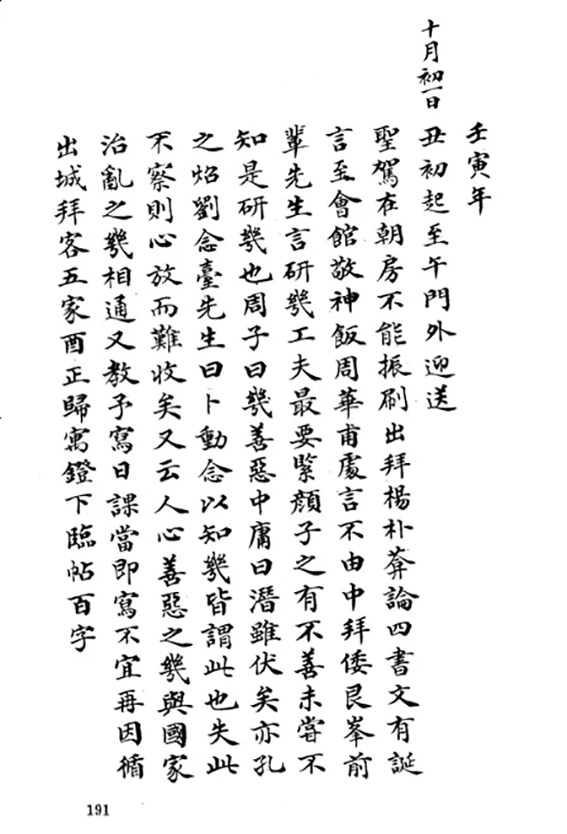 壬寅年
十月初一日 丑初起至午門外迎送
聖駕在朝房不能振刷 出拜楊朴菴論四書文有誕
言至會館敬神飯周華甫處言不由中拜倭艮峯前
輩先生言研幾工夫最要緊顏子之有不善未嘗不
知是研幾也周子曰幾善惡中庸曰潛雖伏矣亦孔
之炤劉念臺先生曰卜動念以知幾皆謂此也失此
不察則心放而難收矣又云人心善惡之幾與國家
治亂之幾相通又教予寫日課當即寫不宜再因循
出城拜客五家酉正歸寓鐙下臨帖百字
191